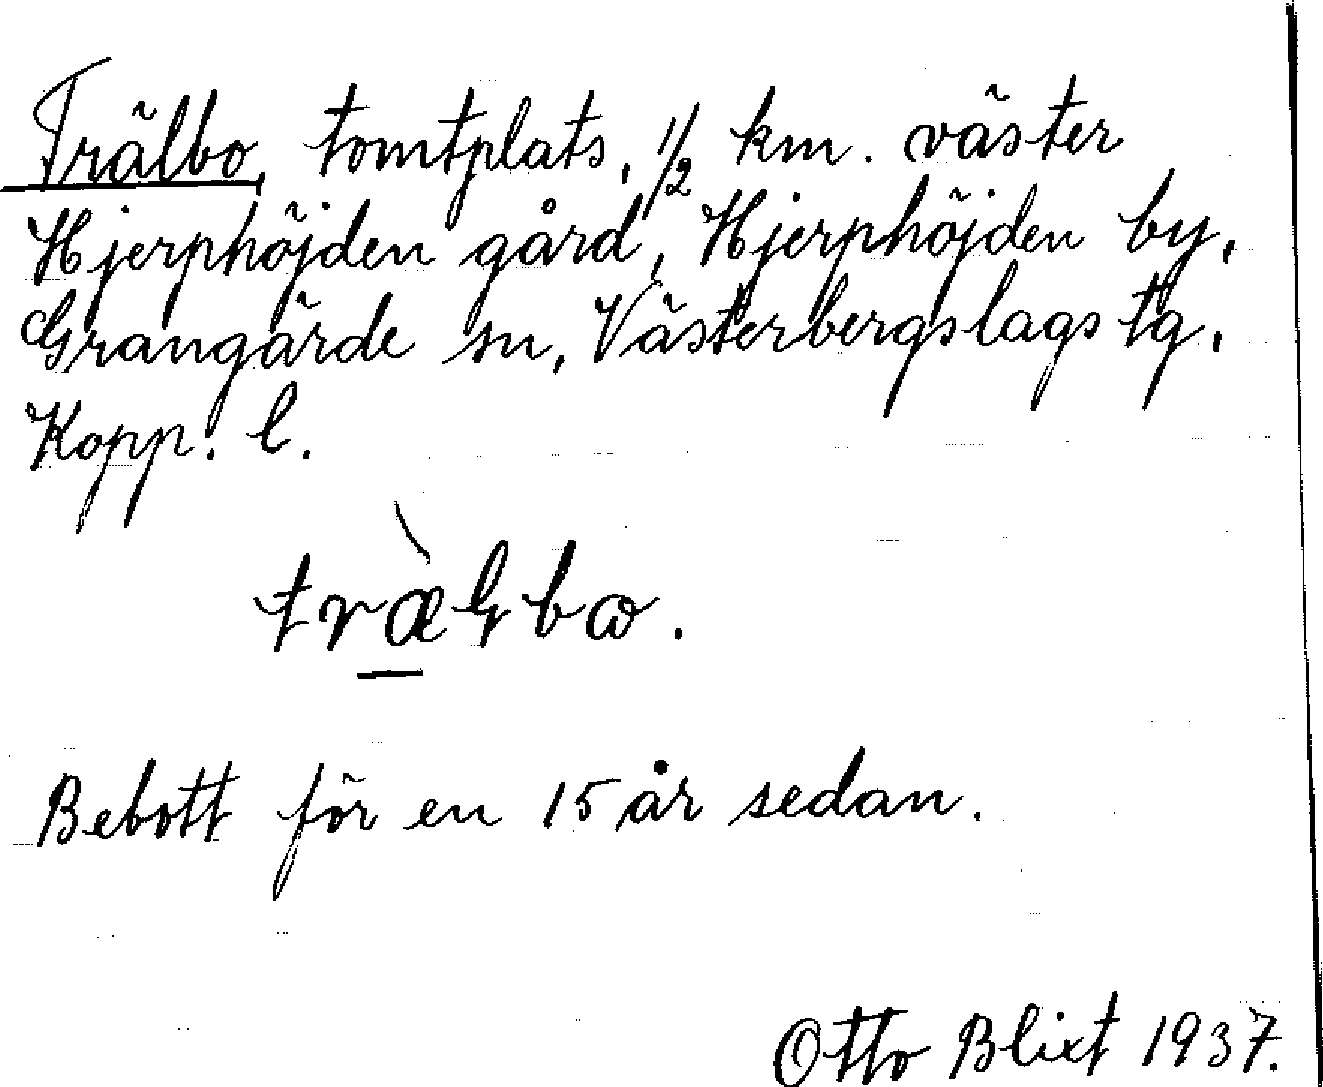 Trälbo, tomtplats, 1/2 km. väster
Hjerphöjden gård, Hjerphöjden by,
Grangärde sn, Västerbergslags tg,
Kopp. l.
træ̀ɫbɷ.
Bebott för en 15 år sedan.
Otto Blixt 1937.